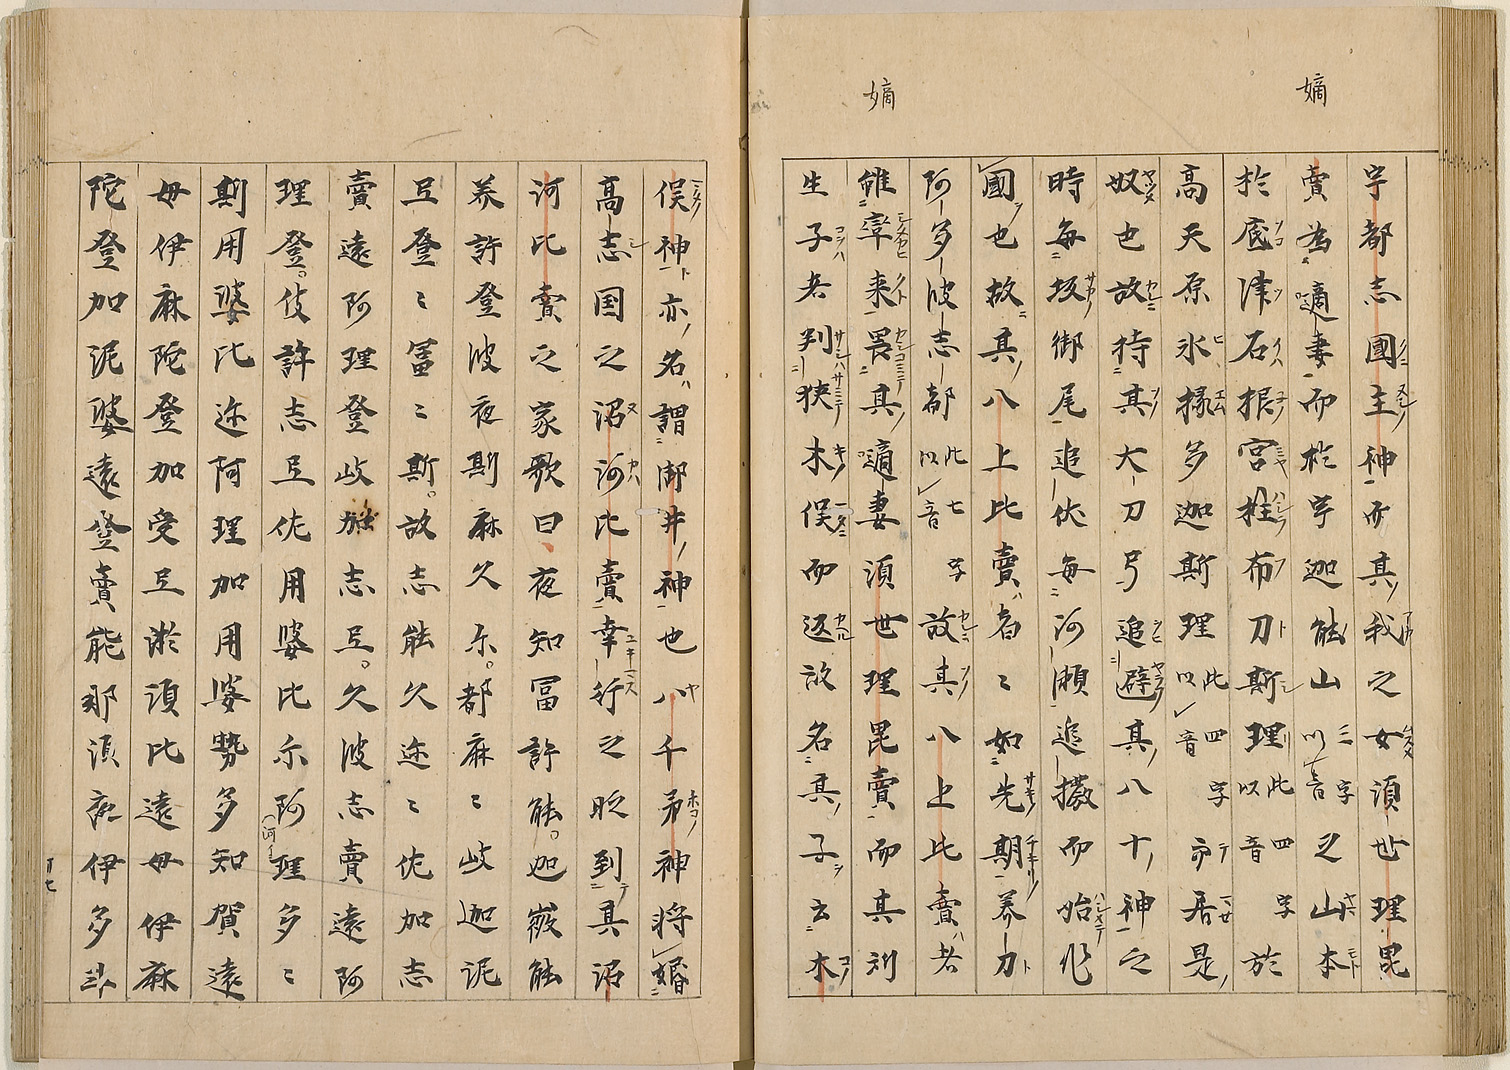 嫡
嫡
宇都志國主神而其我之女須世理毘
賣為適妻而於宇迦能山三字以音之山本
於底津石根宮柱布刀斯理此四字以音於
高天原氷椽多迦斯理此四字以音而居是
奴也故持其大刀弓追避其八十神之
時每坂御尾追伏每河瀬追撥而始作
國也故其八上比賣者〻如先期養力
阿多波志都此七字以音故其八上比賣者
雖率来畏其適妻須世理毘賣而其刾
生子者判狭木俣而返故名其子云木
俣神亦名謂御井神也八千弟神将婚
高志国之沼河比賣幸行之時到其沼
河比賣之家歌曰夜知冨許能迦微能
养許登波夜斯麻久尓都麻〻岐迦泥
弖登〻冨〻斯故志能久迩〻佐加志
賣遠阿理登岐加志弖久波志賣遠阿
理登伎許志弖佐用婆比尓阿理多〻
斯用婆比迩阿理加用婆勢多知賀遠
母伊麻陀登加受弖淤須比遠母伊麻
陀登加泥婆遠登賣能那須夜伊多斗